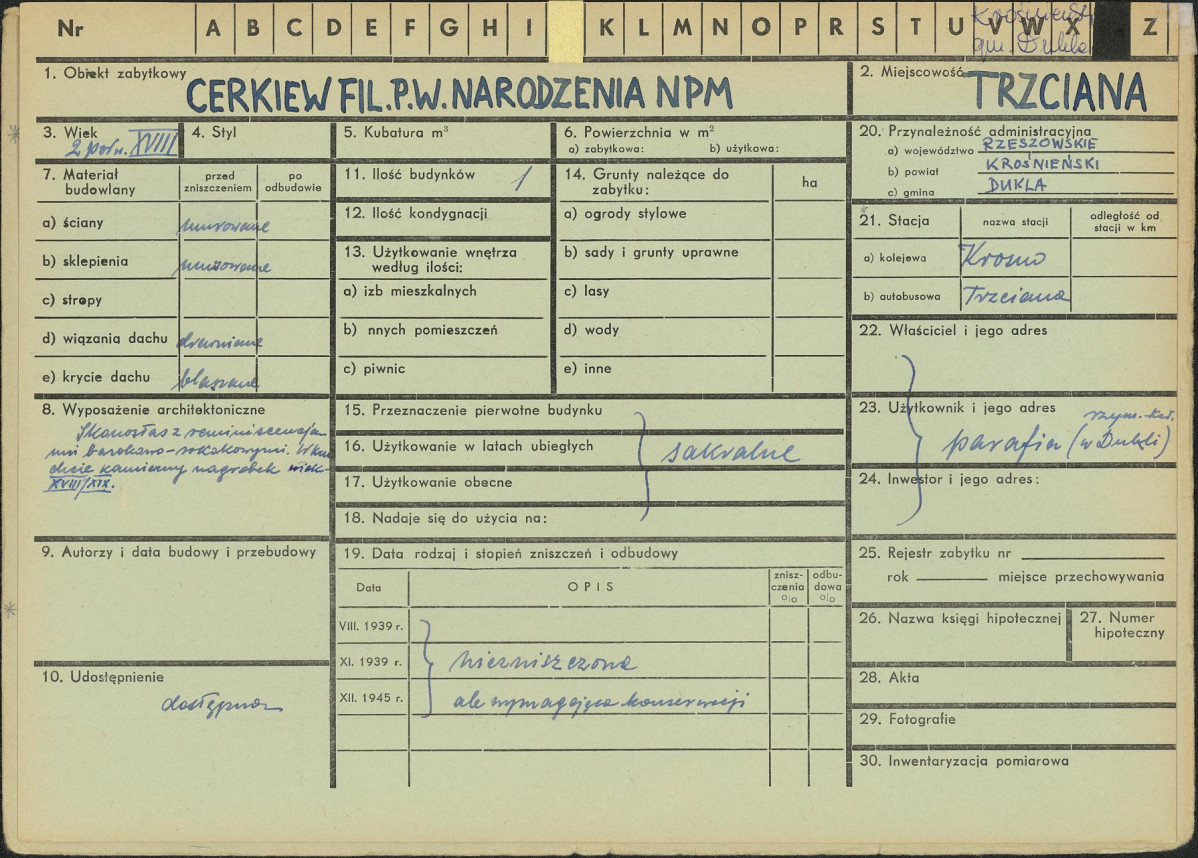 Nr A B C D E F G H I K L M N O P R S T U V W X Z
Krośnieńsk
gm. Dukla
1. Obiekt zabytkowy
CERKIEW FIL.P.W. NARODZENIA NPM
2. Miejscowość
TRZCIANA
3. Wiek
2 poł. XVIII
4. Styl
5. Kubatura m³
6. Powierzchnia w m²
a) zabytkowa: b) użytkowa:
7. Materiał budowlany
przed zniszczeniem
po odbudowie
a) ściany murowane
b) sklepienia murowane
c) stropy
d) wiązania dachu drewniane
e) krycie dachu blaszane
8. Wyposażenie architektoniczne
Ikonostas z reminiscencja-
mi barokowo-rokokowymi. W kru
chcie kamienny nagrobek wiek
XVIII/XIX.
9. Autorzy i data budowy i przebudowy
10. Udostępnienie
dostępna
11. Ilość budynków 1
12. Ilość kondygnacji
13. Użytkowanie wnętrza
według ilości:
a) izb mieszkalnych
b) nnych pomieszczeń
c) piwnic
14. Grunty należące do
zabytku:
ha
a) ogrody stylowe
b) sady i grunty uprawne
c) lasy
d) wody
e) inne
15. Przeznaczenie pierwotne budynku
16. Użytkowanie w latach ubiegłych
sakralne
17. Użytkowanie obecne
18. Nadaje się do użycia na:
19. Data rodzaj i stopień zniszczeń i odbudowy
Data
OPIS
znisz-
czenia
%
odbu-
dowa
%
VIII. 1939 r.
XI. 1939 r. niezniszczona
XII. 1945 r. ale wymagająca konserwacji
20. Przynależność administracyjna
a) województwo RZESZOWSKIE
b) powiat KROŚNIEŃSKI
c) gmina DUKLA
21. Stacja
nazwa stacji
odległość od
stacji w km
a) kolejowa Krosno
b) autobusowa Trzciana
22. Właściciel i jego adres
23. Użytkownik i jego adres
rzym.-kat.
parafia (w Dukli)
24. Inwestor i jego adres:
25. Rejestr zabytku nr
rok miejsce przechowywania
26. Nazwa księgi hipotecznej
27. Numer
hipoteczny
28. Akta
29. Fotografie
30. Inwentaryzacja pomiarowa